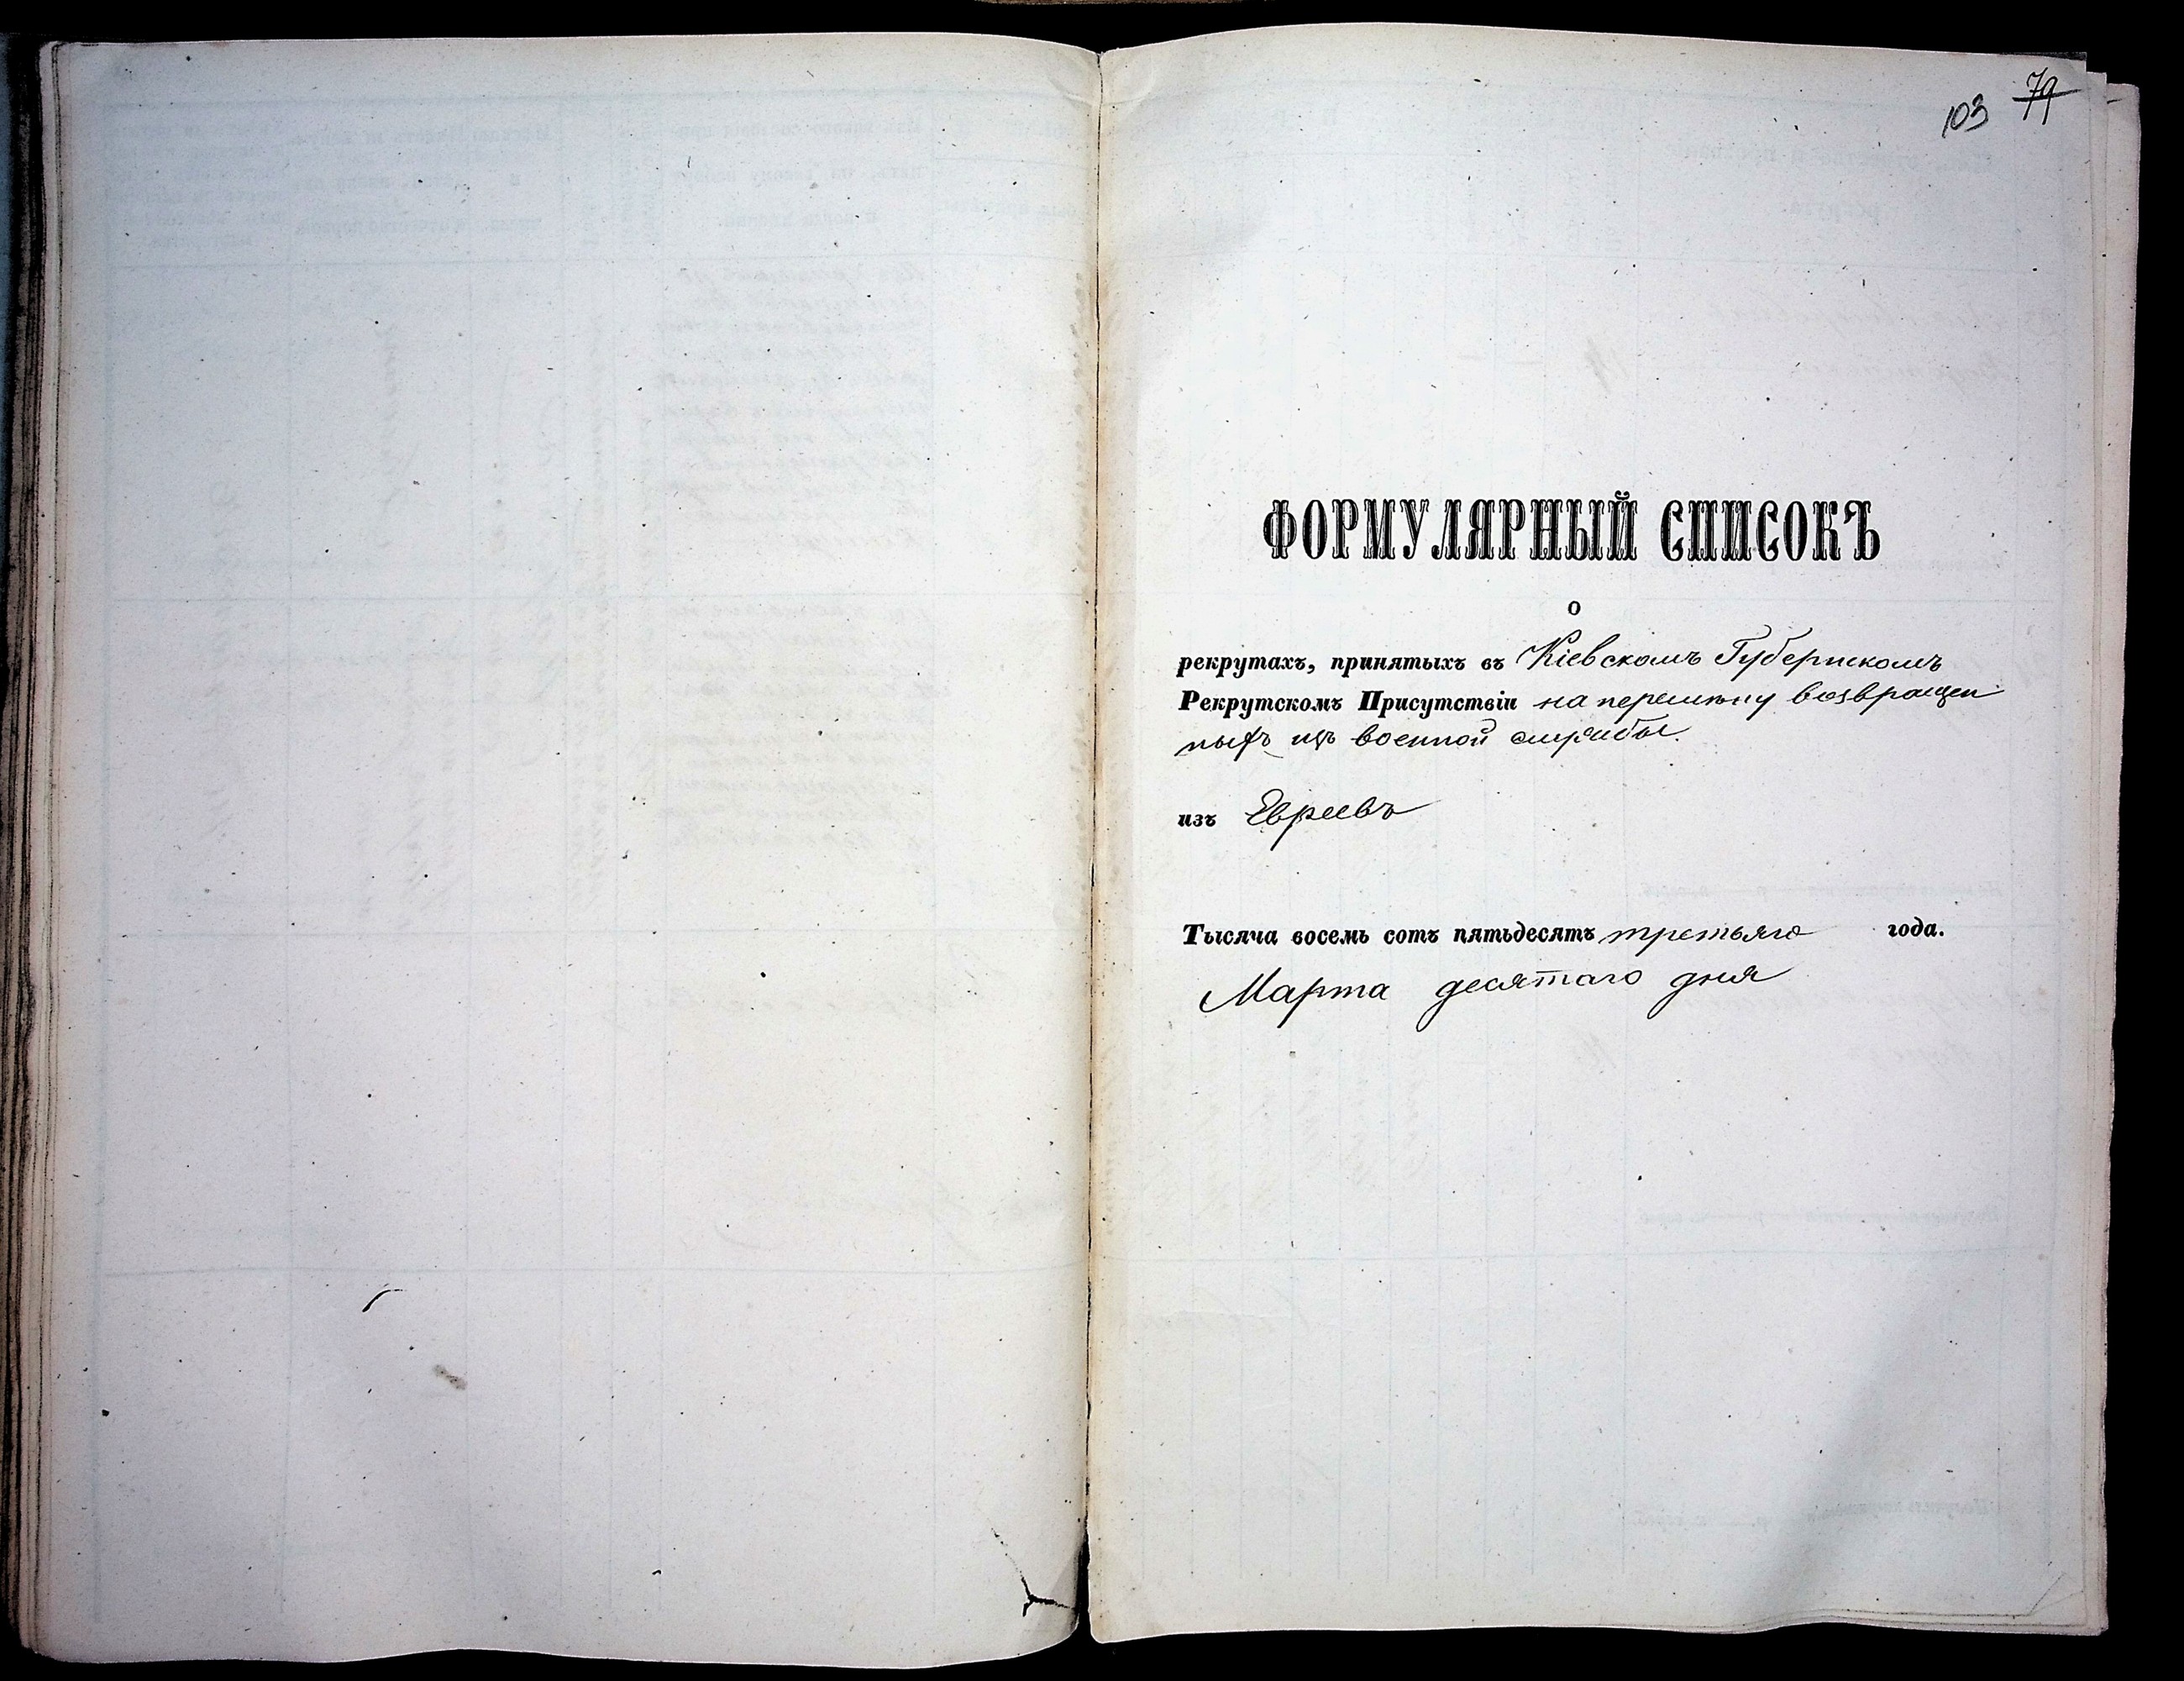 103 79
ФОРМУЛЯРНЫЙ СПИСОКЪ
о
рекрутахъ, принятыхъ въ Кіевскомъ Губернскомъ
Рекрутскомъ Присутствіи на перемѣну возвращен
ныхъ изъ военной службы.
изъ Евреевъ
Тысяча восемь сотъ пятьдесятъ третьяго года.
Марта десятаго дня